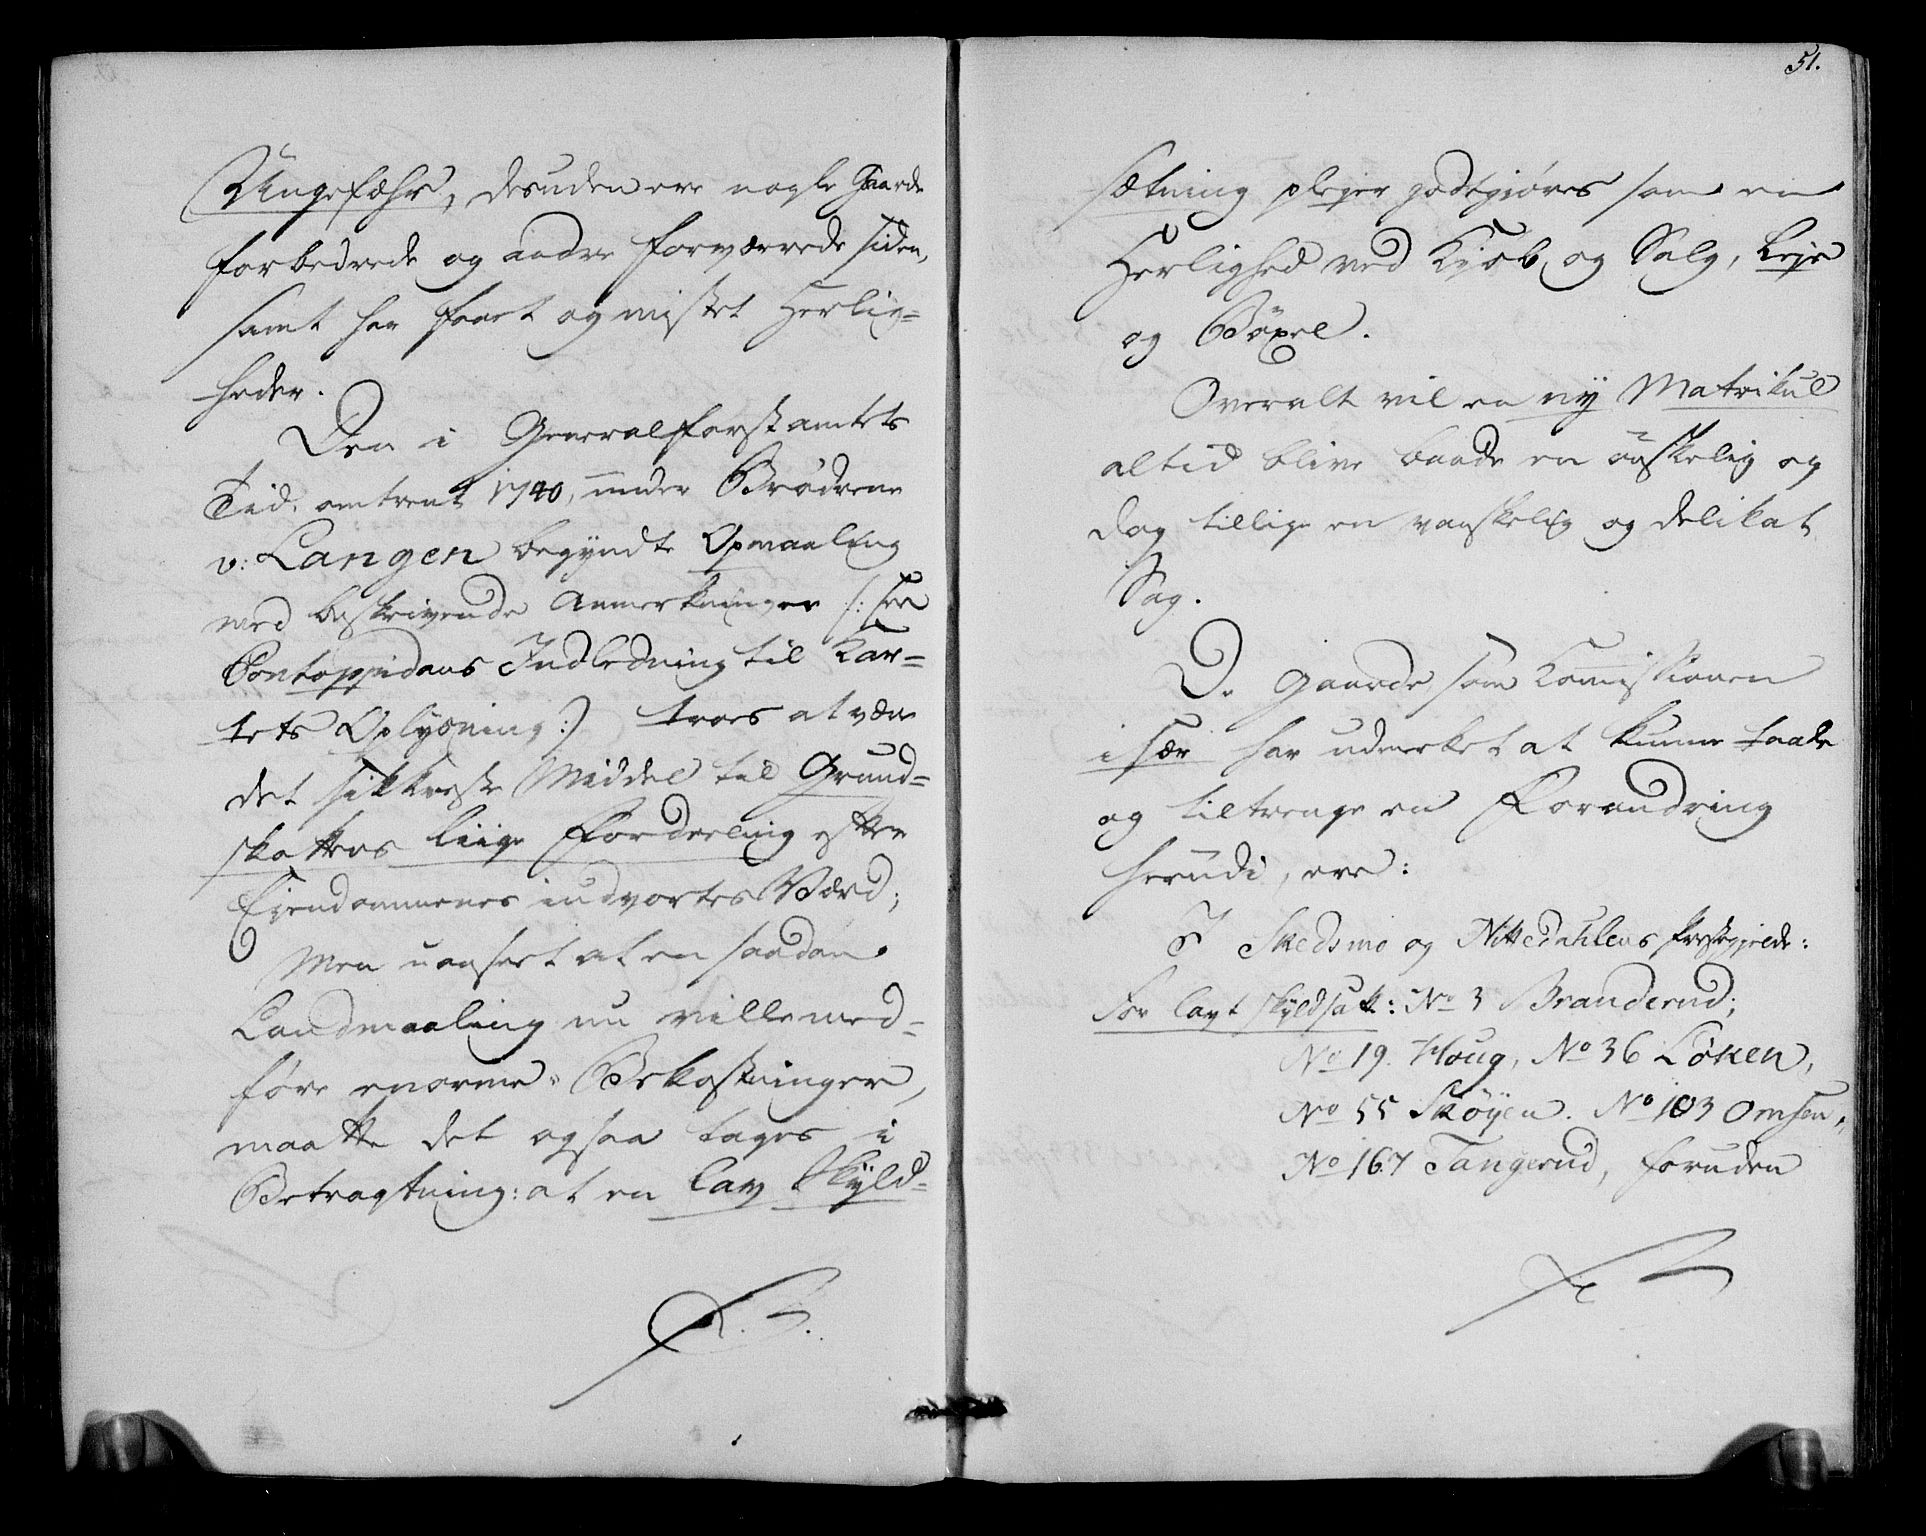 Ungefæhr, desuden ere nogle Gaarde
forbedrede og andre forværrede siden,
samt har faaet og mistet Herlig=
heder.
Den i Generalforstamtets
Tid, omtrent 1740, under Brødrene
v: Langen begyndte Opmaaling
med beskrivende Anmerkninger /: see
Pontoppidans Indledning til Kar=
tets Oplysning :/ troes at være
det sikkreste Middel til Grund=
skattens liige Fordeeling efter
Eiendommenes indvortes Værd;
Men uanseet at en saadan
Landmaaling nu ville med=
føre enorme Bekostninger,
maatte det ogsaa tages i
Betragtning: at en lav Skyld=
51.
sætning plejer godtgiøres som en
Herlighed ved Kjøb og Salg, Leje
og Bøxel.
Overalt vil en ny Matrikul
altid blive baade en ønskelig og
dog tillige en vanskelig og delikat
Sag.
De Gaarde, som Comissionen
i sær har udmerket at kunne taale
og tiltrenge en Forandring
herudi, ere:
I Skedsmo og Nittedahlens Præstegjelde:
For lavt skyldsatt: No 3 Branderud;
No 19. Houg, No 36 Løken,
No 55 Skøyen. No 103 Omsen,
No 167 Tangerud, foruden